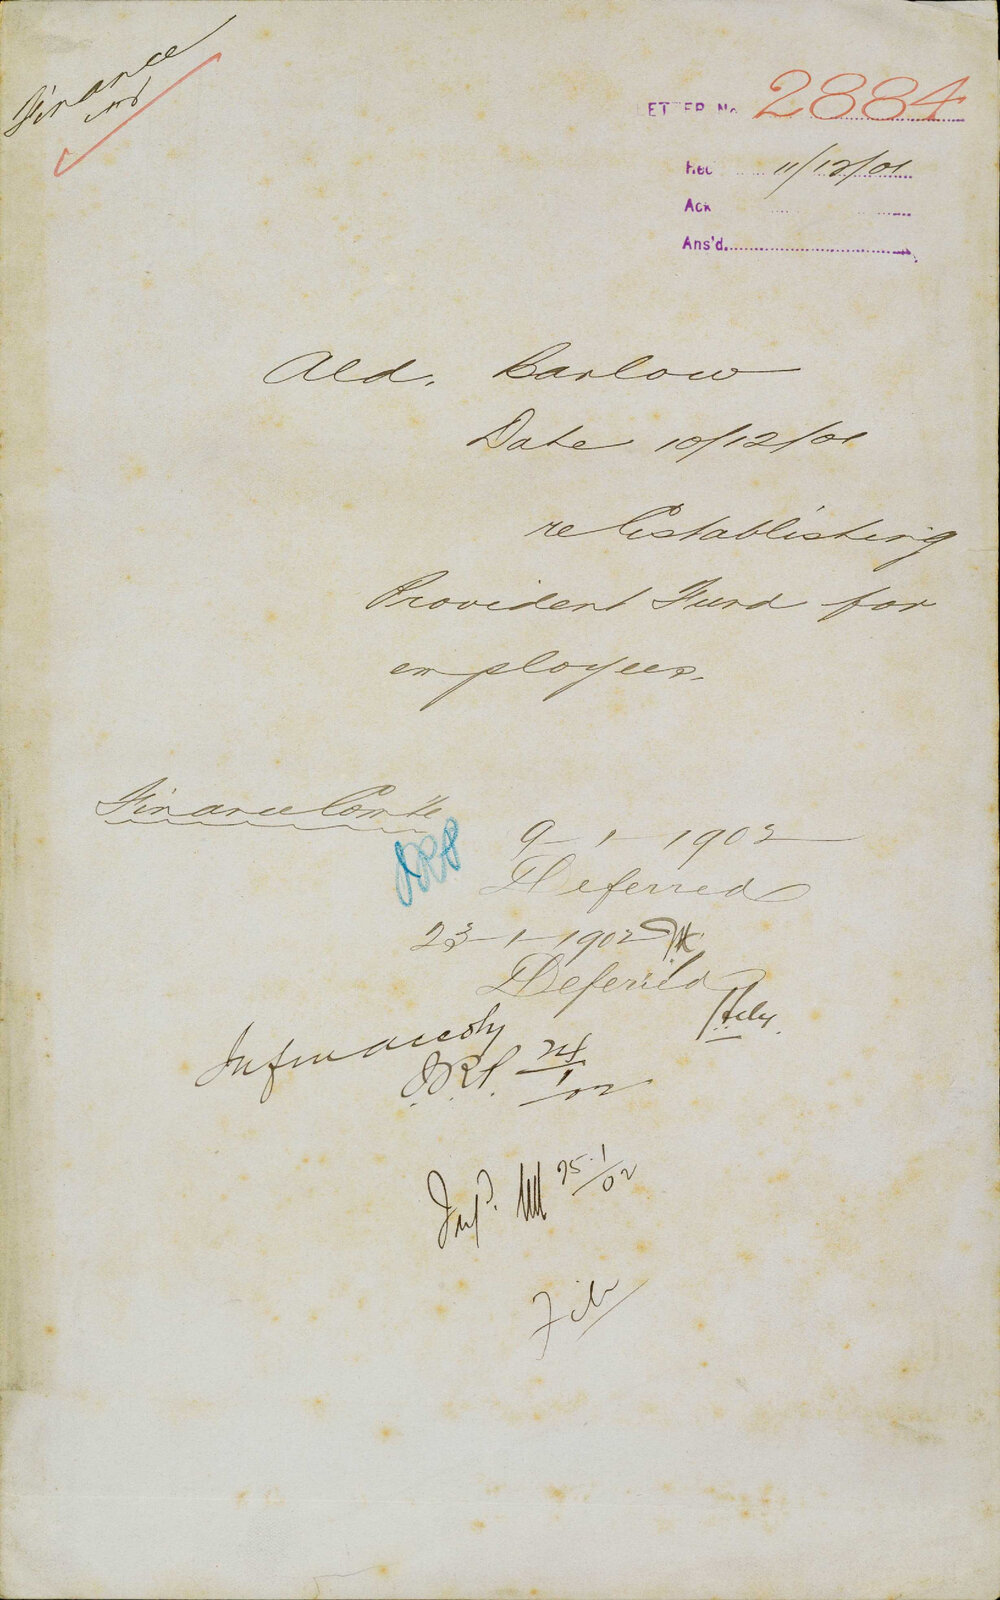 Finance
LETTER No 2884
Rec 11/12/01
Ack
Ans'd
Ald. Barlow
Date 10/12/01
re Establishing
Provident Fund for
employees.
Finance Comtte
9-1-1902
Deferred
23-1-1902
Deferred
Inform accdly
24/1/02
Inf. 25.1/02
File